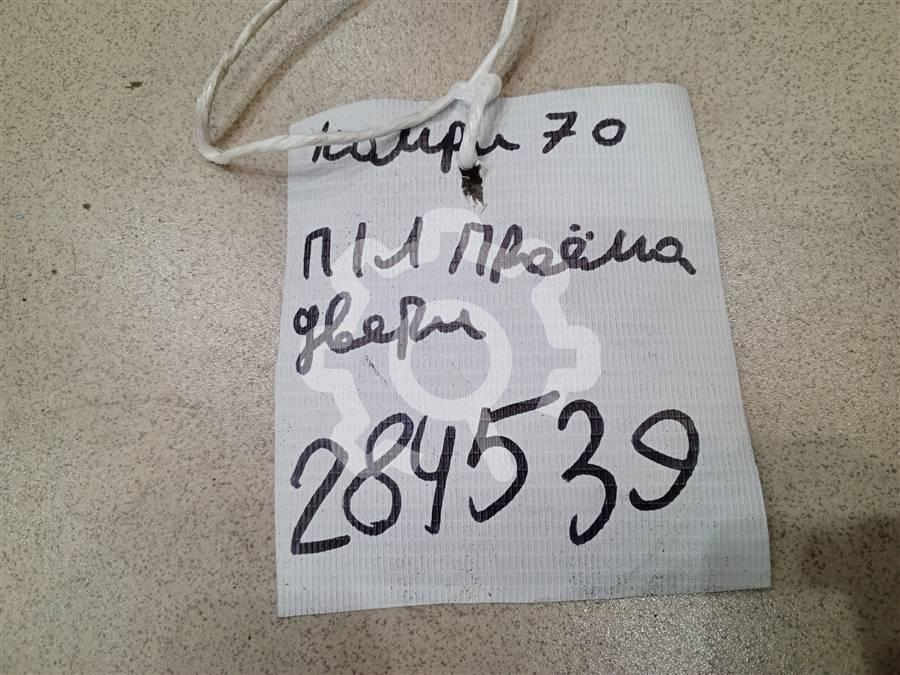 камри 70
П/Л Проёма
двери
284539